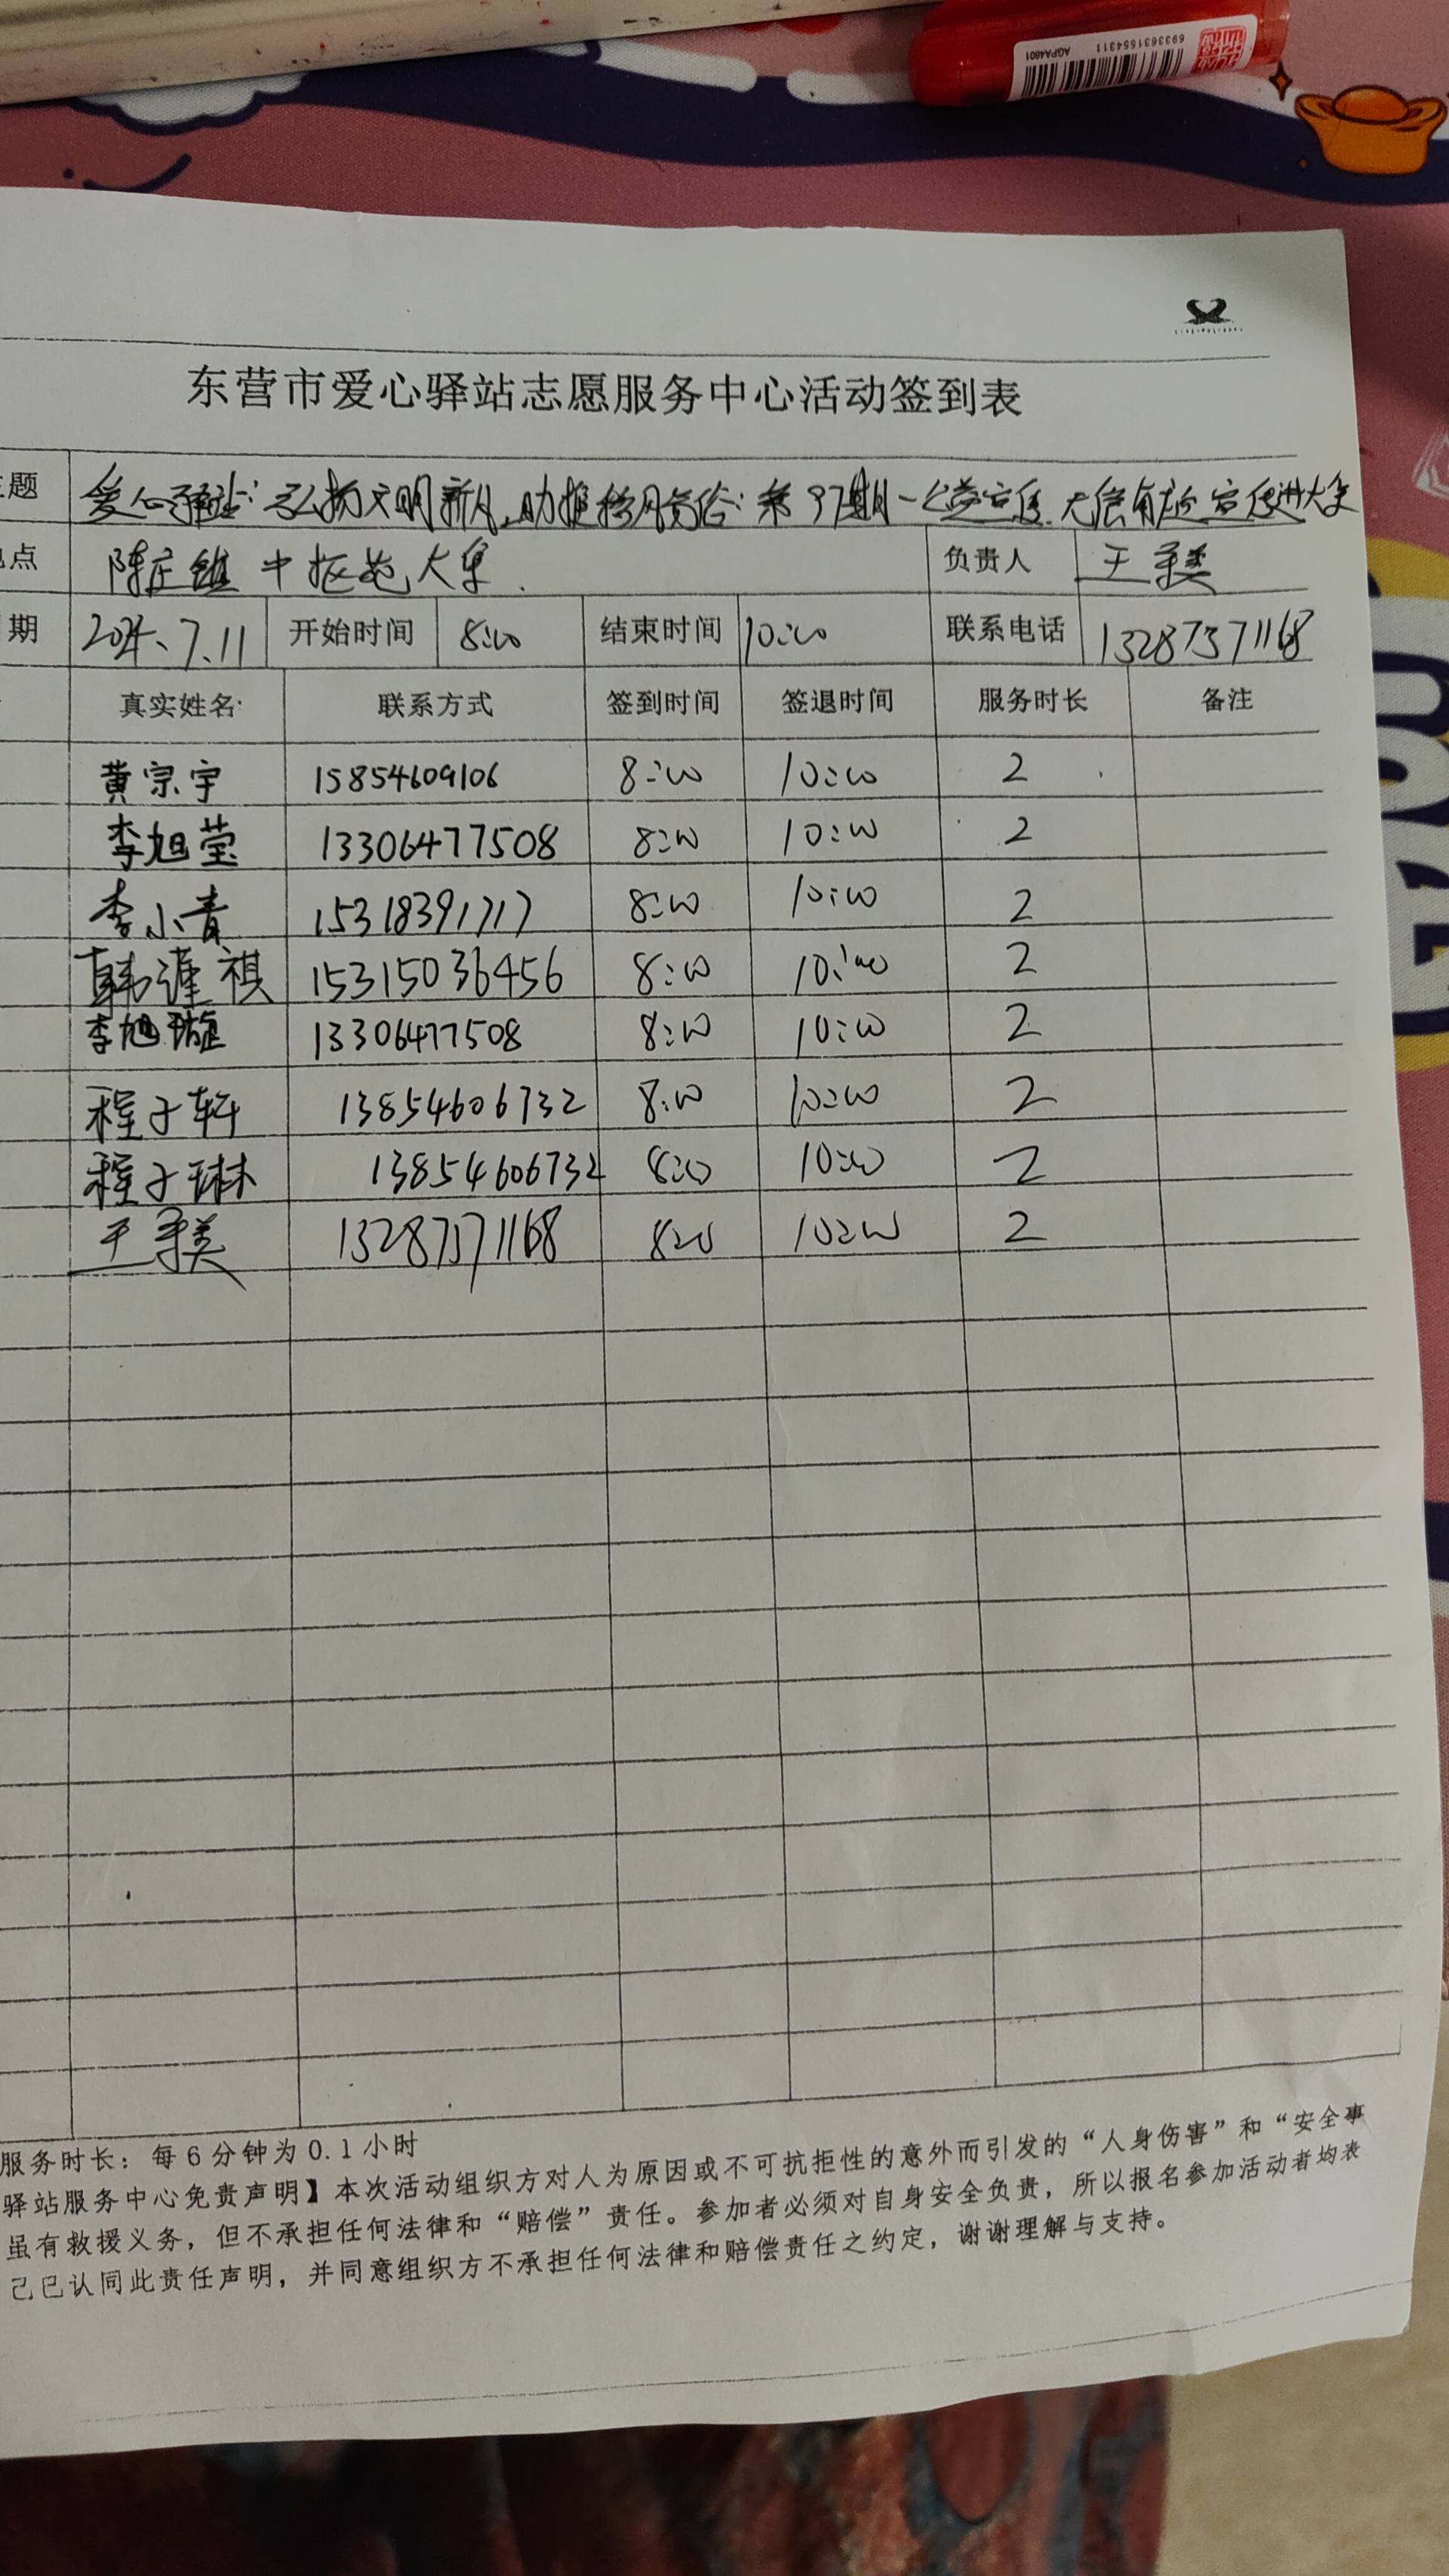 6933631554311
AGPA4801
东营市爱心驿站志愿服务中心活动签到表
题 爱心驿站:弘扬文明新风,助推移风易俗:第97期
点 陈庄镇中 大集 负责人 王
期 7.11 开始时间 8:00 结束时间 10:00 联系电话 13287371168
真实姓名 联系方式 签到时间 签退时间 服务时长 备注
黄宗宇 15854609106 8:00 10:00 2
李旭莹 13306477508 8:00 10:00 2
李小青 15318391717 8:00 10:00 2
韩 祺 15315036456 8:00 10:00 2
李旭璇 13306477508 8:00 10:00 2
程子轩 13854606732 8:00 10:00 2
程子琳 13854606732 8:00 10:00 2
王 13287371168 8:00 10:00 2
服务时长:每6分钟为0.1小时
驿站服务中心免责声明】本次活动组织方对人为原因或不可抗拒性的意外而引发的“人身伤害”和“安全事
虽有救援义务,但不承担任何法律和“赔偿”责任。参加者必须对自身安全负责,所以报名参加活动者均表
己已认同此责任声明,并同意组织方不承担任何法律和赔偿责任之约定,谢谢理解与支持。